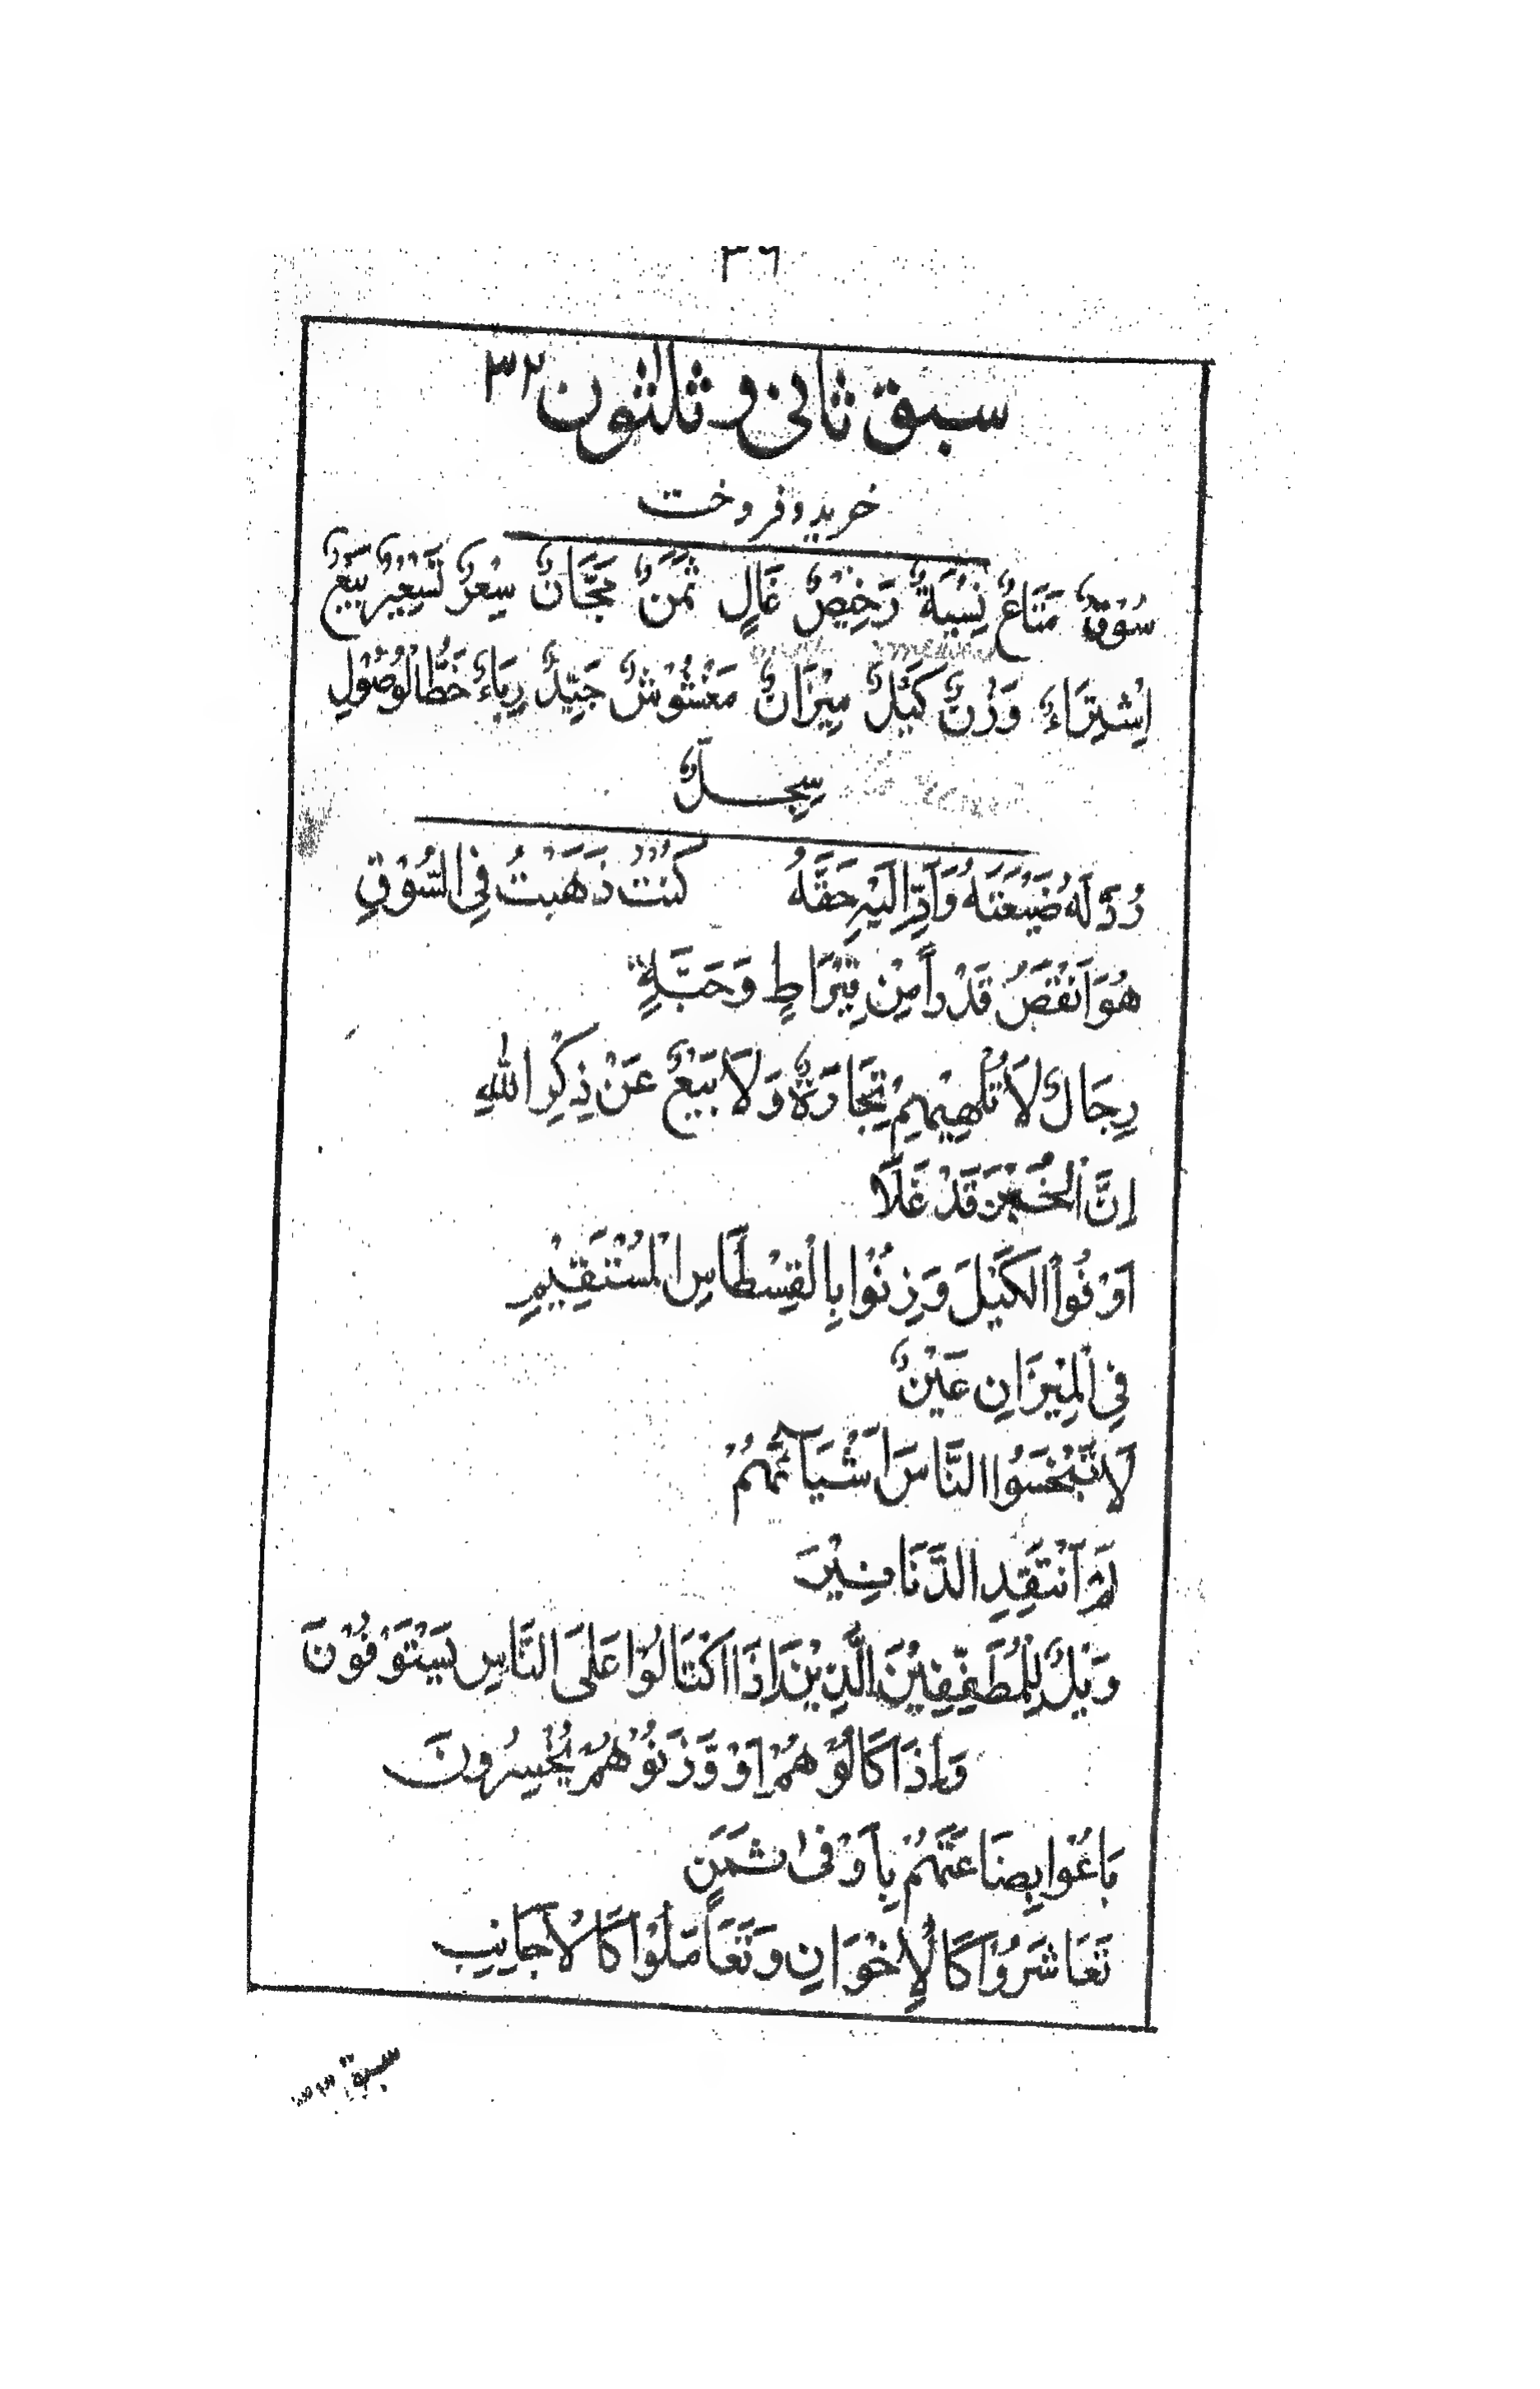 ٣٦
سبق ثانی و ثلثون ٣٢
خرید و فروخت
سُوْقٌ مَتَاعٌ نِسْبَةٌ رَخِيْصٌ غَالٍ ثَمَنٌ مَجَّانٌ سِعْرٌ تَسْعِيْرٌ بَيْعٌ
اِشْتِرَاءٌ وَزْنٌ كَيْلٌ مِيْزَانٌ مَغْشُوْشٌ جَيِّدٌ رِبَاءٌ خَطُّ الْوُصُوْلِ
سِجِلٌّ
رُدَّ لَهُ ضَيْعَتَهُ وَاَدِّ اِلَيْهِ حَقَّهُ كُنْتُ ذَهَبْتُ فِي السُّوْقِ
هُوَ اَنْقَصُ قَدْراً مِنْ قِيْرَاطٍ وَحَبَّةٍ
رِجَالٌ لَا تُلْهِيْهِمْ تِجَارَةٌ وَلَا بَيْعٌ عَنْ ذِكْرِ اللهِ
اِنَّ الْخُبْزَ قَدْ غَلَا
اَوْفُوا الْكَيْلَ وَزِنُوْا بِالْقِسْطَاسِ الْمُسْتَقِيْمِ
فِي الْمِيْزَانِ عَيْنٌ
لَا تَبْخَسُوا النَّاسَ اَشْيَآئَهُمْ
لَمْ اَنْتَقِدِ الدَّنَانِيْرَ
وَيْلٌ لِلْمُطَفِّفِيْنَ الَّذِيْنَ اِذَا اكْتَالُوْا عَلَى النَّاسِ يَسْتَوْفُوْنَ
وَاِذَا كَالُوْهُمْ اَوْ وَّزَنُوْهُمْ يُخْسِرُونَ
بَاعُوْا بِضَاعَتَهُمْ بِاَوْفٰى ثَمَنٍ
تَعَاشَرُوْا كَالْاِخْوَانِ وَتَعَامَلُوْا كَالْاَجَانِبِ
سبق